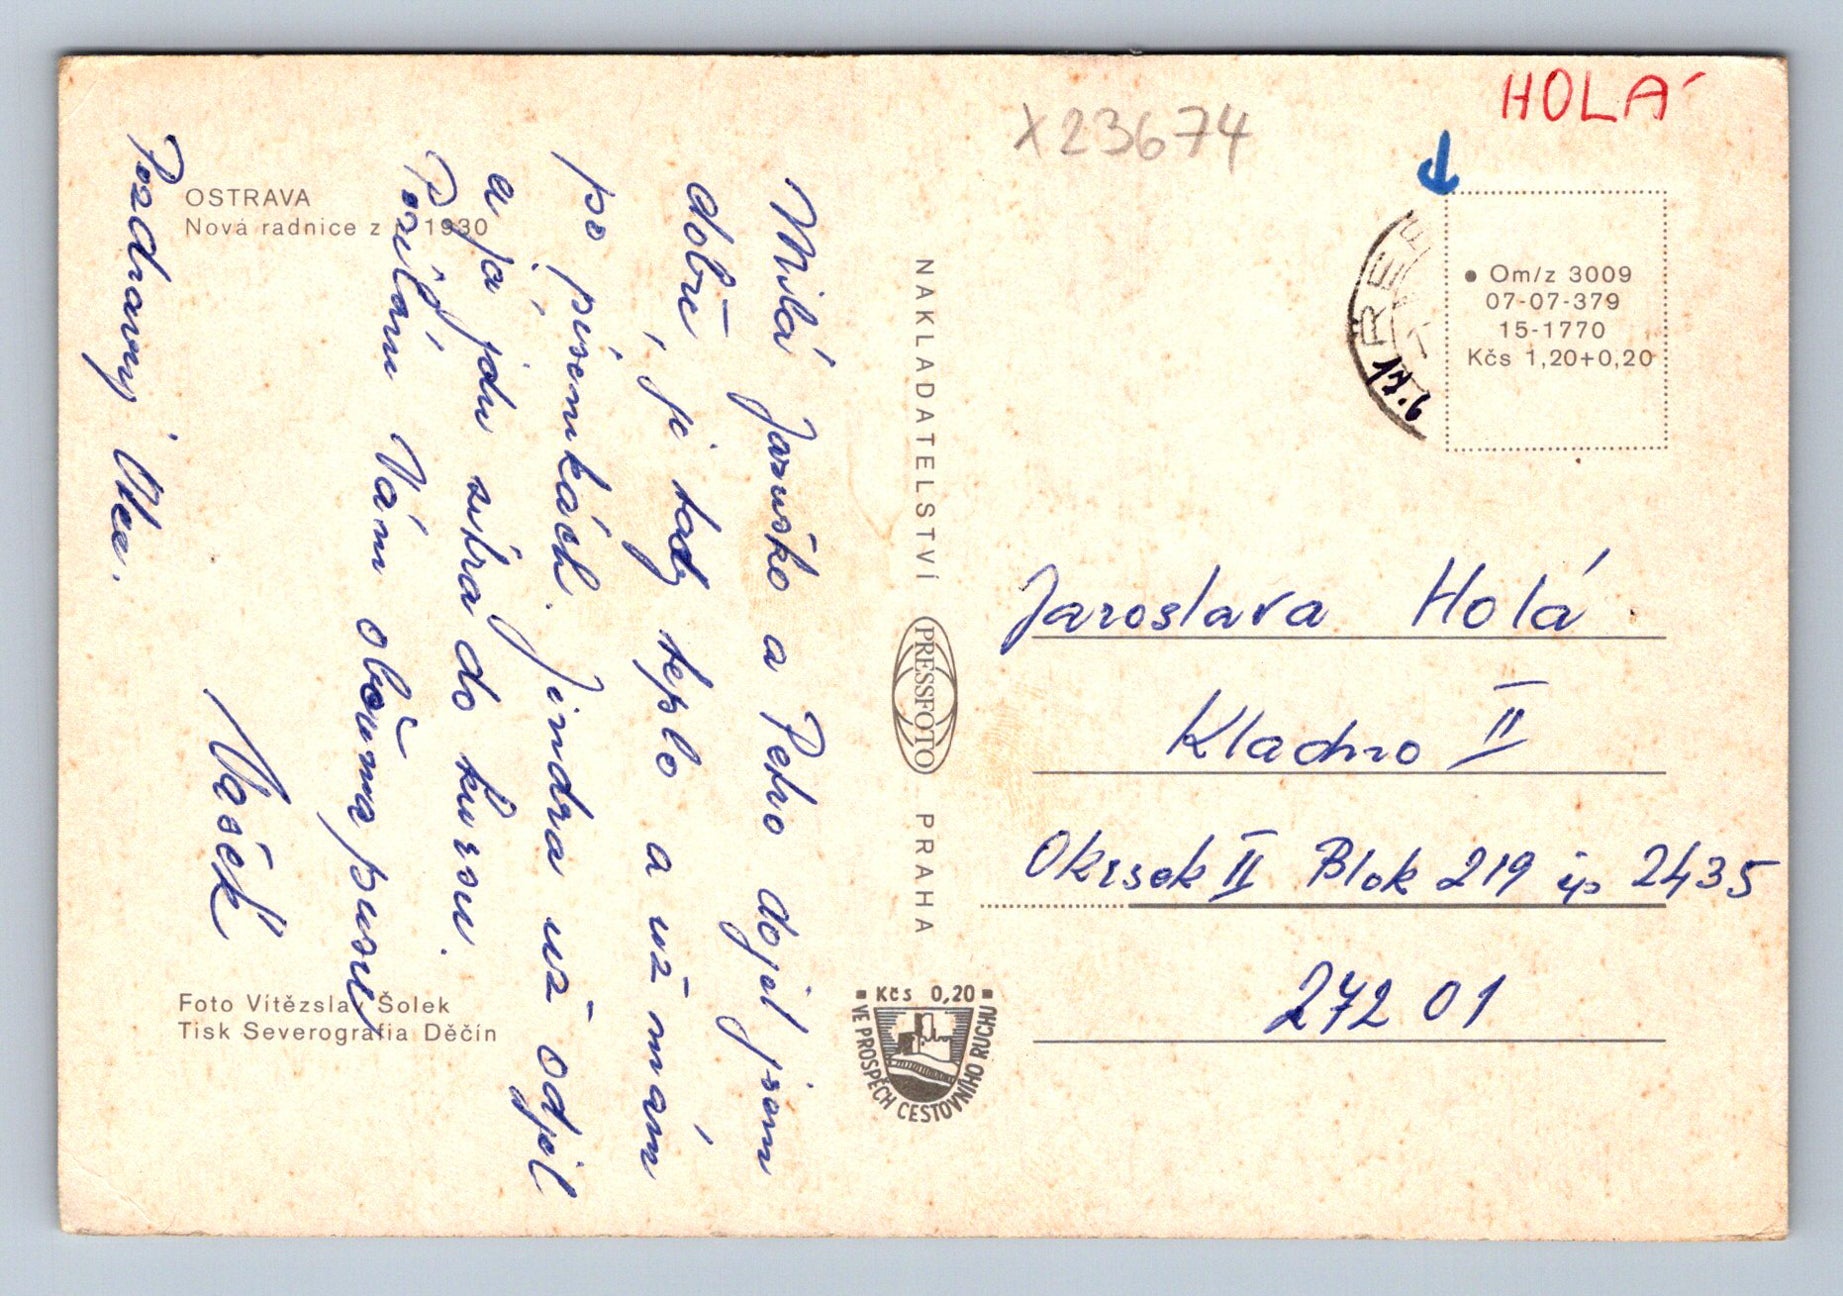 HOLÁ
X23674
OSTRAVA
Nová radnice z r. 1930
Milá Jaruško a Petro dojel jsem
dobře, je tady teplo a už mám
po písemkách. Jindra už odjel
a já jdu zítra do kursu.
Posílám Vám oběma pusu
Vašek
Pozdravuj Otce.
Foto Vítězslav Šolek
Tisk Severografia Děčín
NAKLADATELSTVÍ PRESSFOTO PRAHA
Kčs 0,20
VE PROSPĚCH CESTOVNÍHO RUCHU
Om/z 3009
07-07-379
15-1770
Kčs 1,20+0,20
Jaroslava Holá
Kladno II
Okrsek II Blok 219 čp 2435
272 01